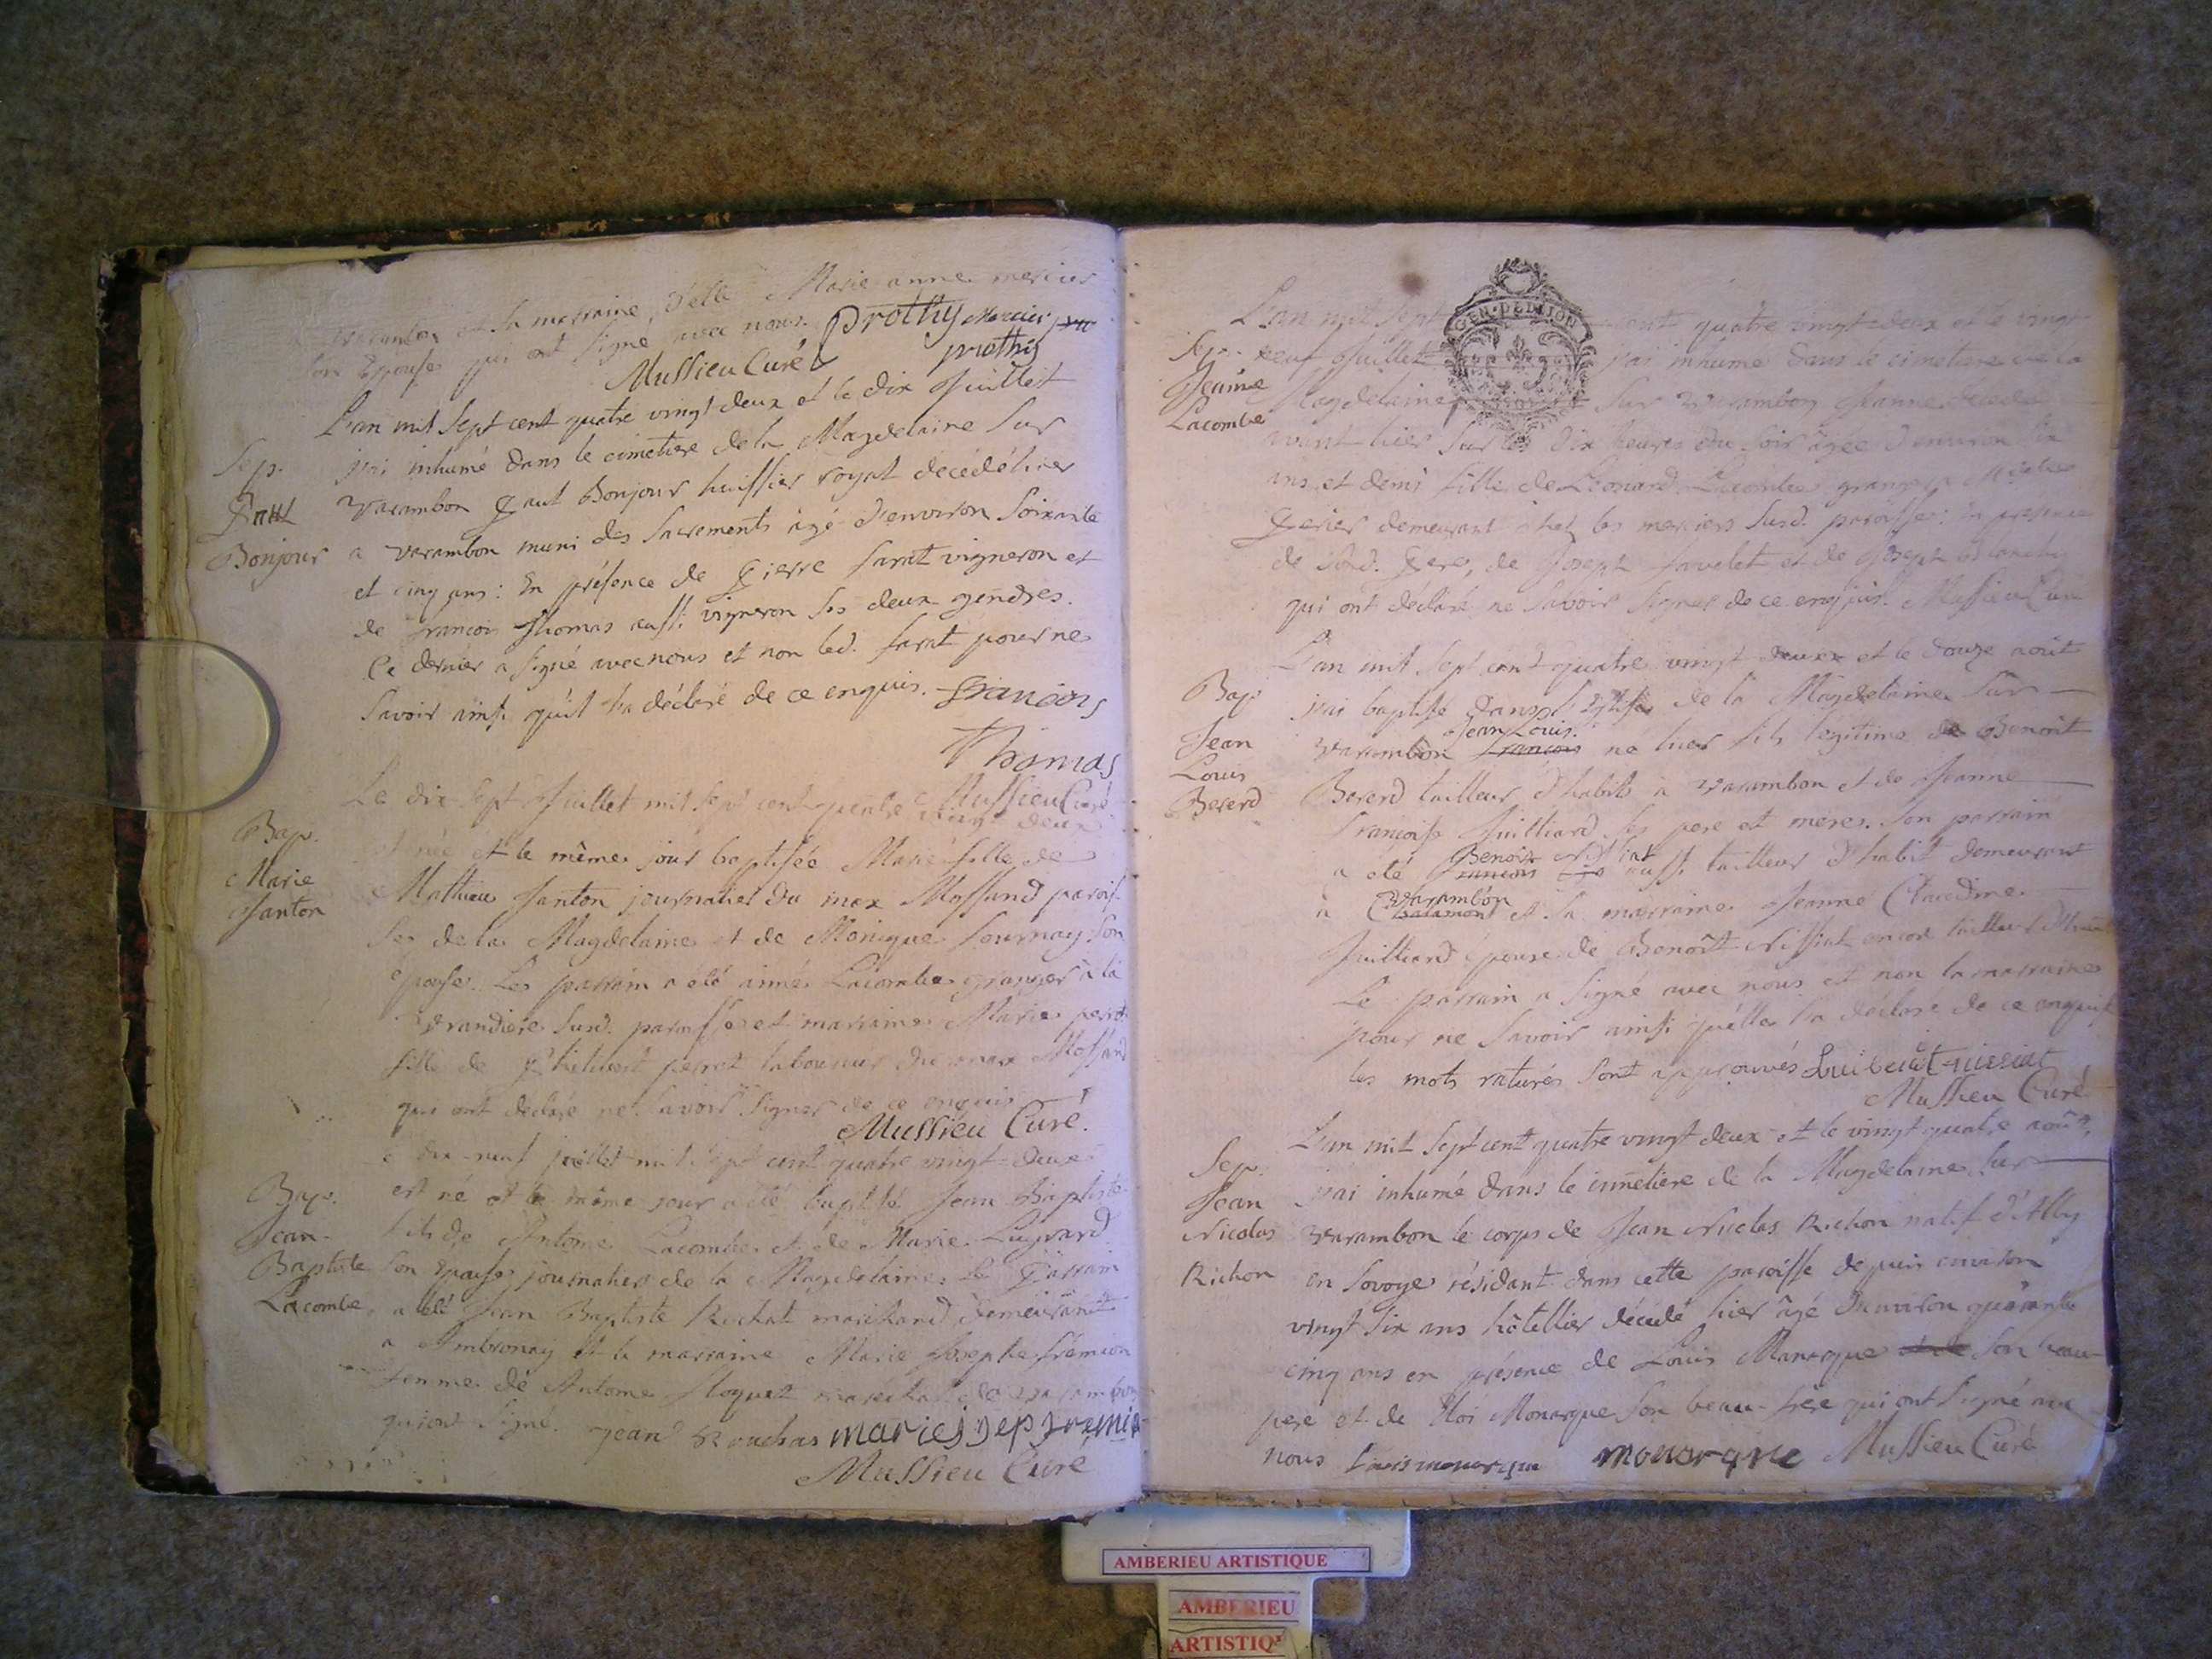 varambon et sa marraine, delle Marie anne mercier
son Epouse qui ont signé avec nous. Prothy Mercier
prothy
Mussieu Curé
L'an mil Sept cent quatre vingt deux et le dix Juillet
Sep. j'ai inhumé dans le cimetiere de la Magdelaine Sur
Paul varambon Paul Bonjour huissier royal decédé hier
Bonjour a varambon muni des Sacrements âgé d'environ Soixante
et cinq ans : En présence de Pierre farat vigneron et
de francois Thomas aussi vigneron Ses deux gendres.
Ce dernier a signé avec nous et non led. farat pour ne
Savoir ainsi qu'il l'a déclaré de ce enquis. francois
Thomas
Mussieu Curé
Le dix Sept Juillet mil Sept cent quatre vingt deux
Bap. est née et le même jour baptisée Marie fille de
Marie Mathieu Janton journalier du max Mossand parois
Janton se de la Magdelaine et de Monique fournay Son
épouse. Le parrain a été aimé Lacombe granger à la
grandiere Susd. paroisse et marraine Marie perret
fille de Philibert perret laboureur du max Mossand
qui ont declaré ne Savoir Signer de ce enquis
Mussieu Curé.
Le dix-neuf juillet mil Sept cent quatre vingt-deux
Bap. est né et le même jour a été baptisé Jean Baptiste
Jean- fils de Antoine Lacombe et de Marie
Baptiste Son Epouse journalier de la Magdelaine. Le Parrain
Lacombe a été Jean Baptiste Rochat marchand demeurant
a Ambronay et la marraine Marie Josephe frémion
femme de Antoine marechal de varambon
qui ont Signé. jean Rouchas
Mussieu Curé
L'an mil Sept cent quatre vingt-deux et le vingt
Sep. neuf Juillet j'ai inhumé dans le cimetiere de la
GEN. DE DIJON
Jeanne Magdelaine Sur varambon Jeanne decedée
Lacombe avant hier Sur les dix heures du Soir agée d'environ
ans et demi fille de Léonard Lacombe granger
Perier demeurant chez les merciers Susd. paroisse: En presence
de Sond. Pere, de Joseph favelet et de Joseph
qui ont declaré ne Savoir Signer de ce enquis. Mussieu Curé
L'an mil Sept cent quatre vingt deux et le douze août
Bap. j'ai baptisé dans l'Eglise de la Magdelaine Sur
Jean Louis.
Jean varambon francois né hier fils légitime de Benoit
Louis
Bererd Bererd tailleur d'habits à varambon et de Jeanne
françoise Juilliard Ses pere et mere. Son parrain
Benoit Nissiat
a été francois aussi tailleur d'habit demeurant
Varambon
à Chalamont et Sa marraine Jeanne Claudine
Juilliard épouse de Benoît Nissiat encor tailleur
Le parrain a Signé avec nous et non la marraine
pour ne Savoir ainsi qu'elle l'a déclaré de ce enquis
les mots raturés Sont approuvés
Mussieu Curé
L'an mil Sept cent quatre vingt deux et le vingt quatre août
Sep. j'ai inhumé dans le cimetiere de la Magdelaine Sur
Jean
Nicolas varambon le corps de Jean Nicolas Richon natif d'Alby
Richon en Savoye résidant dans cette paroisse depuis environ
vingt Six ans hôtellier décédé hier âgé d'environ quarante
cinq ans en présence de Louis Monarque et de Son beau-
pere et de Monarque Son beau-frere qui ont Signé avec
nous Louis monarque monarque Mussieu Curé
AMBERIEU ARTISTIQUE
AMBERIEU
ARTISTIQ